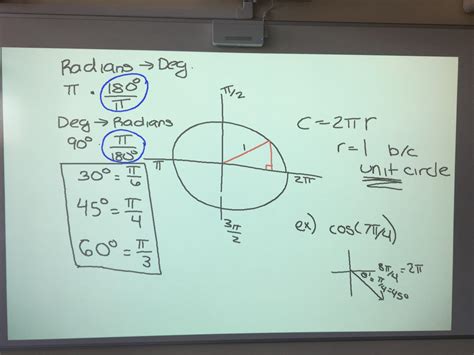 Radians → Deg.
π · 180°/π
Deg → Radians
90° · π/180°
30° = π/6
45° = π/4
60° = π/3
π/2
1
π
2π
3π/2
C = 2πr
r = 1 b/c
unit circle
ex) cos(7π/4)
8π/4 = 2π
θ'
π/4 = 45°